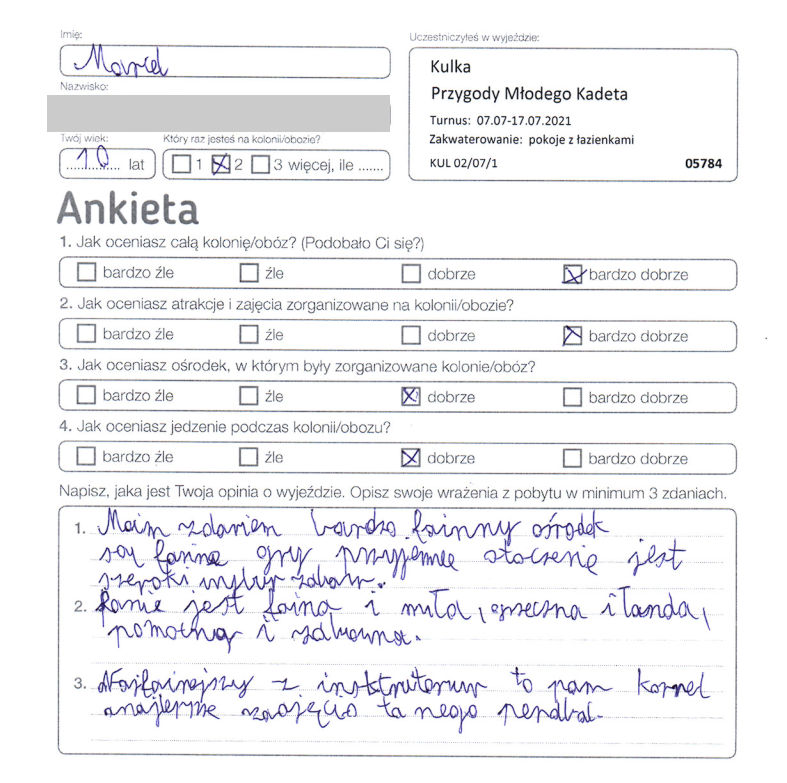 Imię:
Marcel
Nazwisko:
Twój wiek:
10 lat
Który raz jesteś na kolonii/obozie?
1 2 3 więcej, ile .......
Uczestniczyłeś w wyjeździe:
Kulka
Przygody Młodego Kadeta
Turnus: 07.07-17.07.2021
Zakwaterowanie: pokoje z łazienkami
KUL 02/07/1 05784
Ankieta
1. Jak oceniasz całą kolonię/obóz? (Podobało Ci się?)
bardzo źle źle dobrze bardzo dobrze
2. Jak oceniasz atrakcje i zajęcia zorganizowane na kolonii/obozie?
bardzo źle źle dobrze bardzo dobrze
3. Jak oceniasz ośrodek, w którym były zorganizowane kolonie/obóz?
bardzo źle źle dobrze bardzo dobrze
4. Jak oceniasz jedzenie podczas kolonii/obozu?
bardzo źle źle dobrze bardzo dobrze
Napisz, jaka jest Twoja opinia o wyjeździe. Opisz swoje wrażenia z pobytu w minimum 3 zdaniach.
1. Moim zdaniem bardzo fainny ośrodek
są gry przyjemne otoczenie jest
szeroki wybur zabaw.
2. jest faina i miła, grzeczna i ładna,
pomocna i zabawna.
3. Najfainejszy z to pan Kornel
zaojęcia to nego